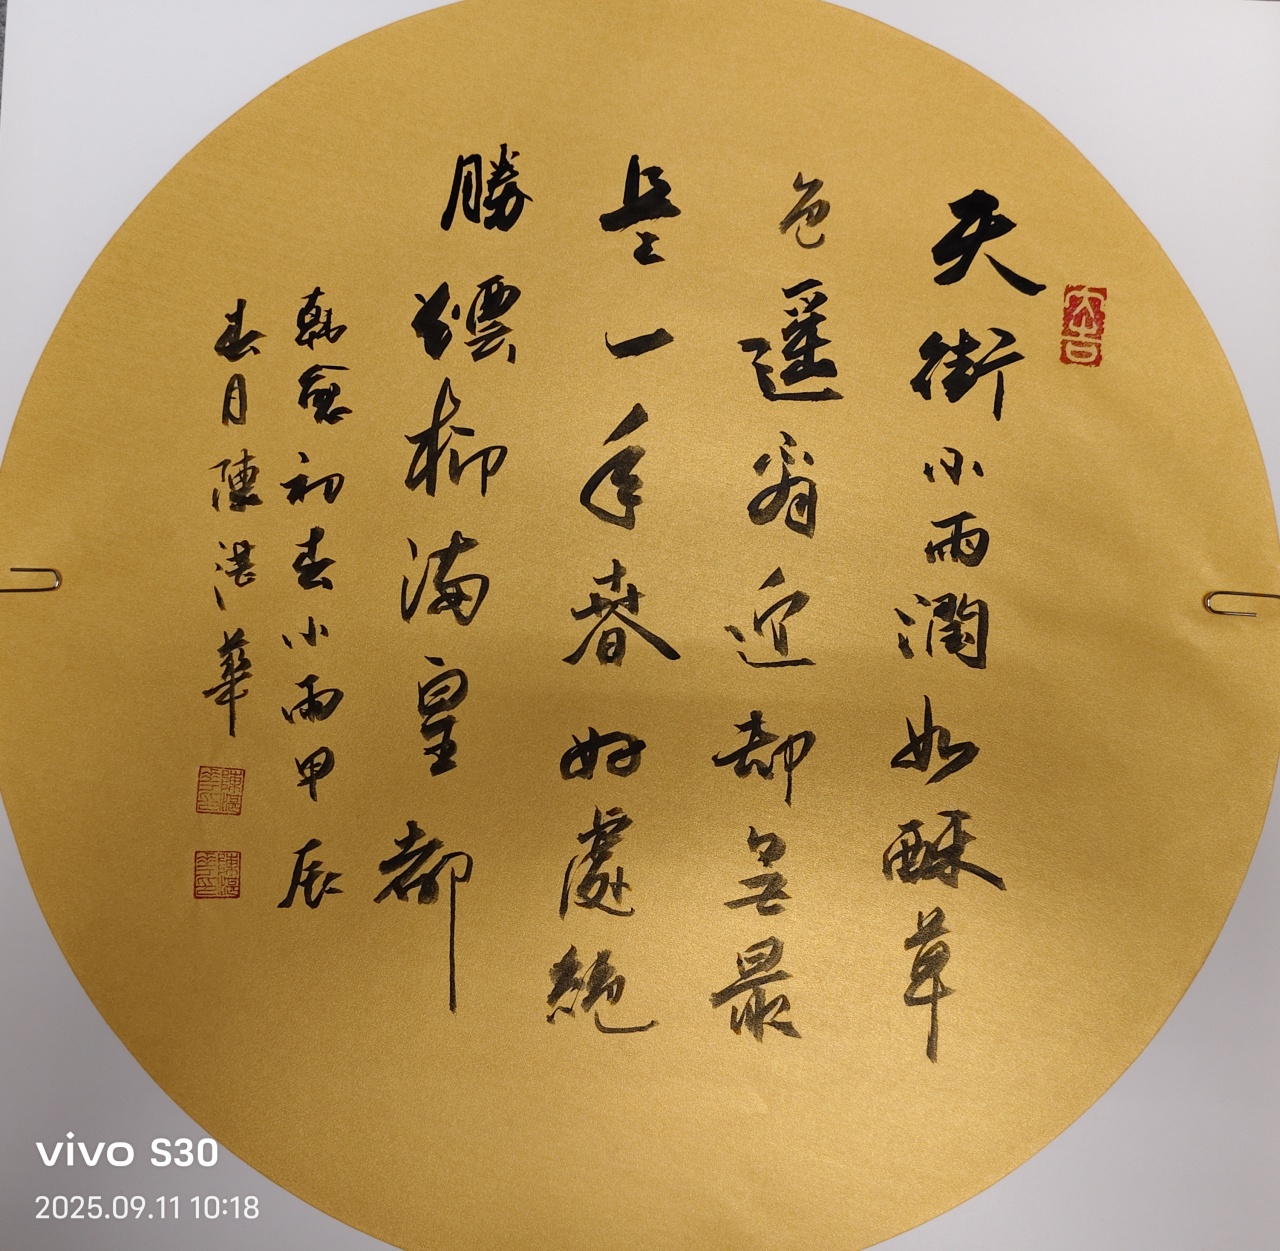 天街小雨潤如酥草
色遥看近却無最
是一年春好處絕
勝煙柳滿皇都
韓愈初春小雨甲辰
春月陳湛華
大吉
vivo S30
2025.09.11 10:18